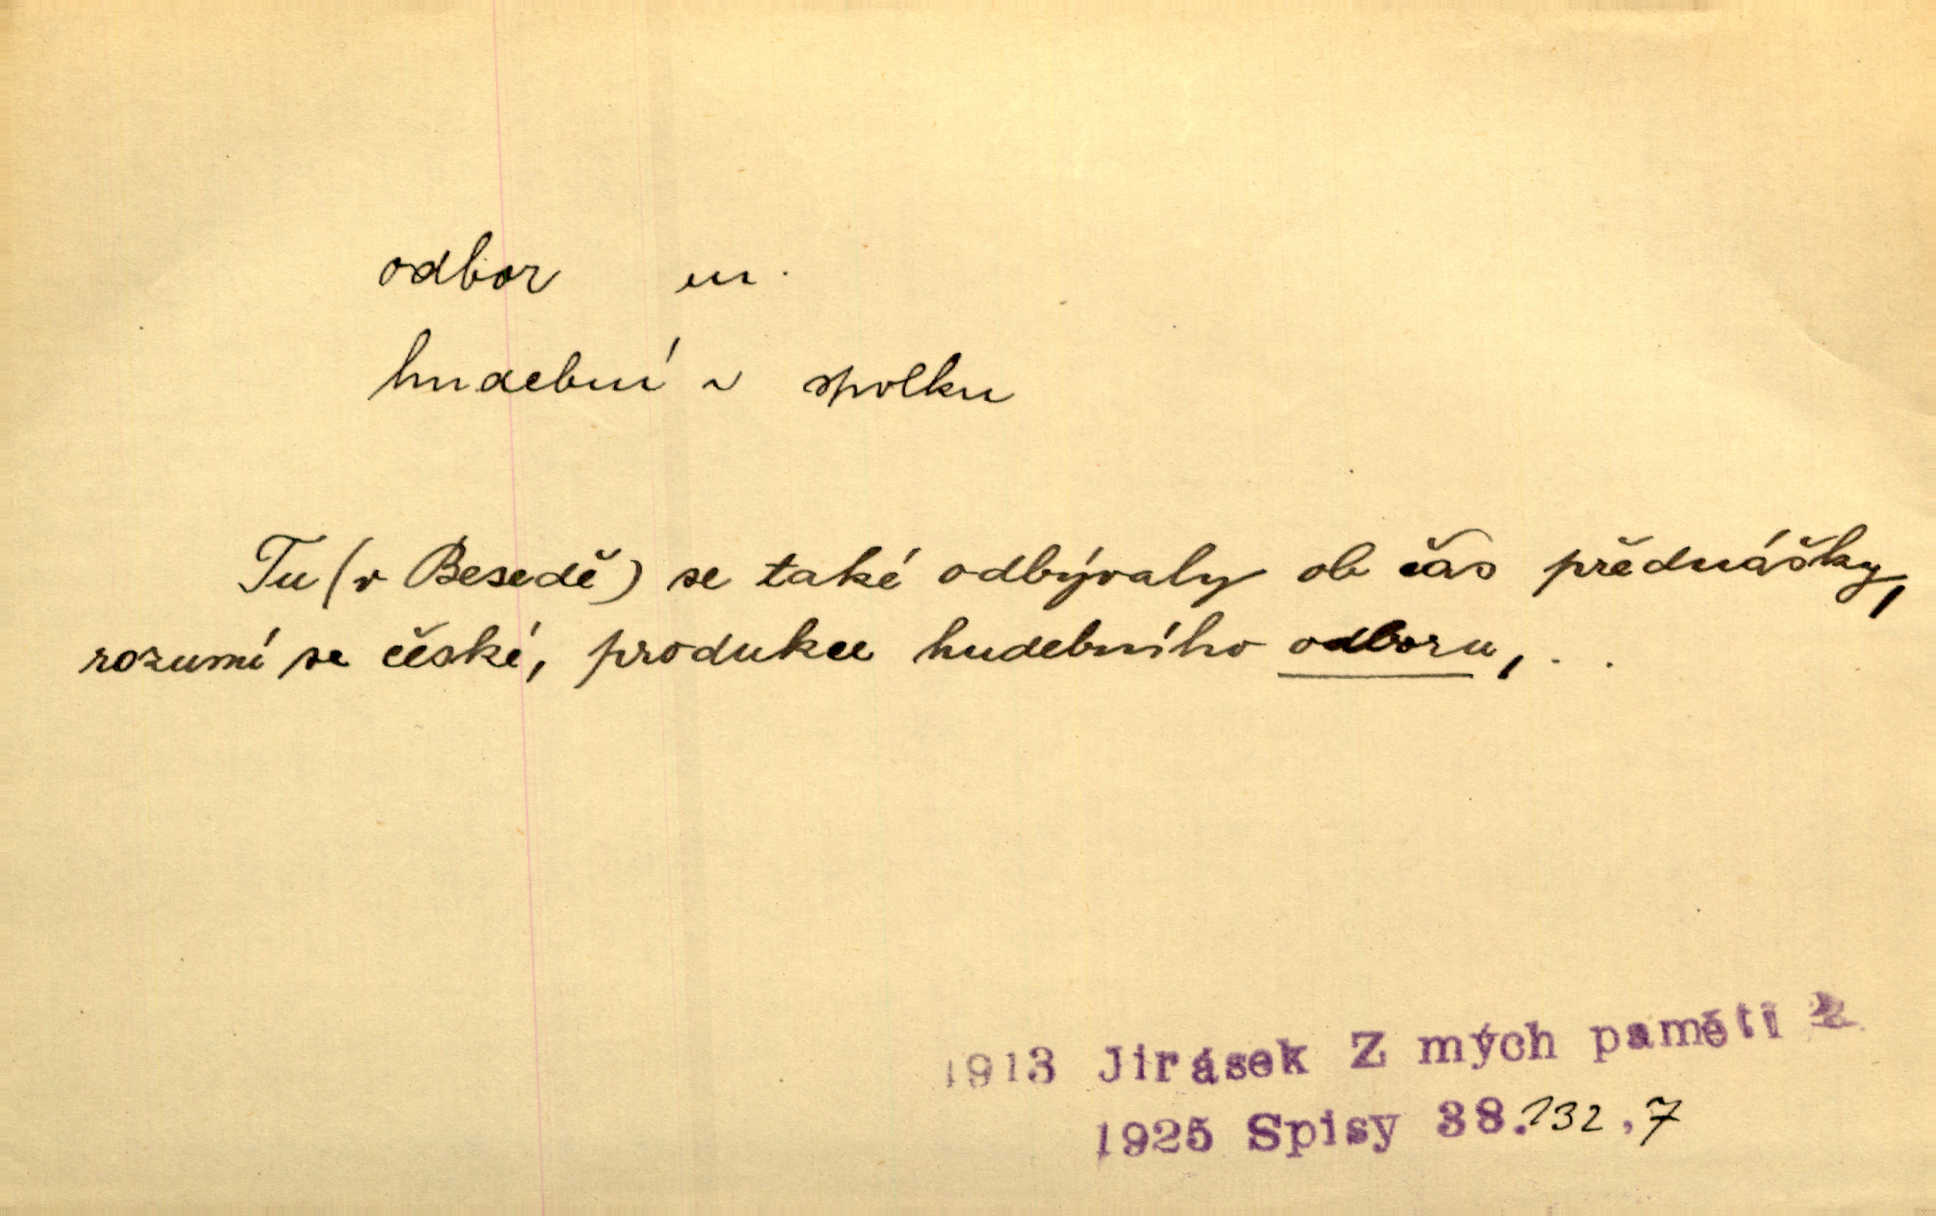 odbor m.
hudební v spolku
Tu (v Besedě) se také odbývaly ob čas přednášky,
rozumí se české, produkce hudebního odboru, . .
1913 Jirásek Z mých pamětí 2
1925 Spisy 38.132,7